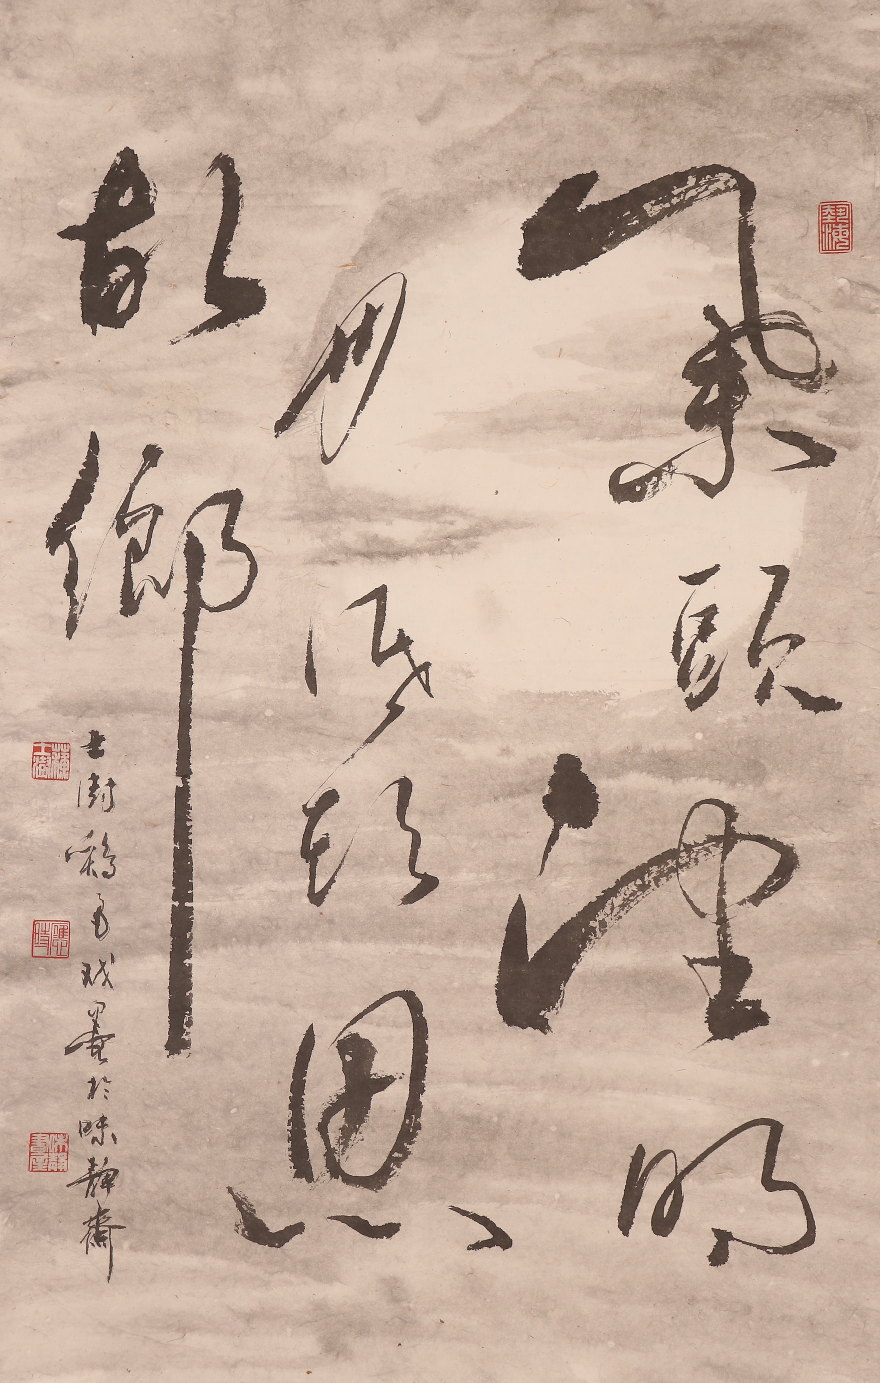 舉頭望明
月低頭思
故鄉
士澍戏墨於味靜齋